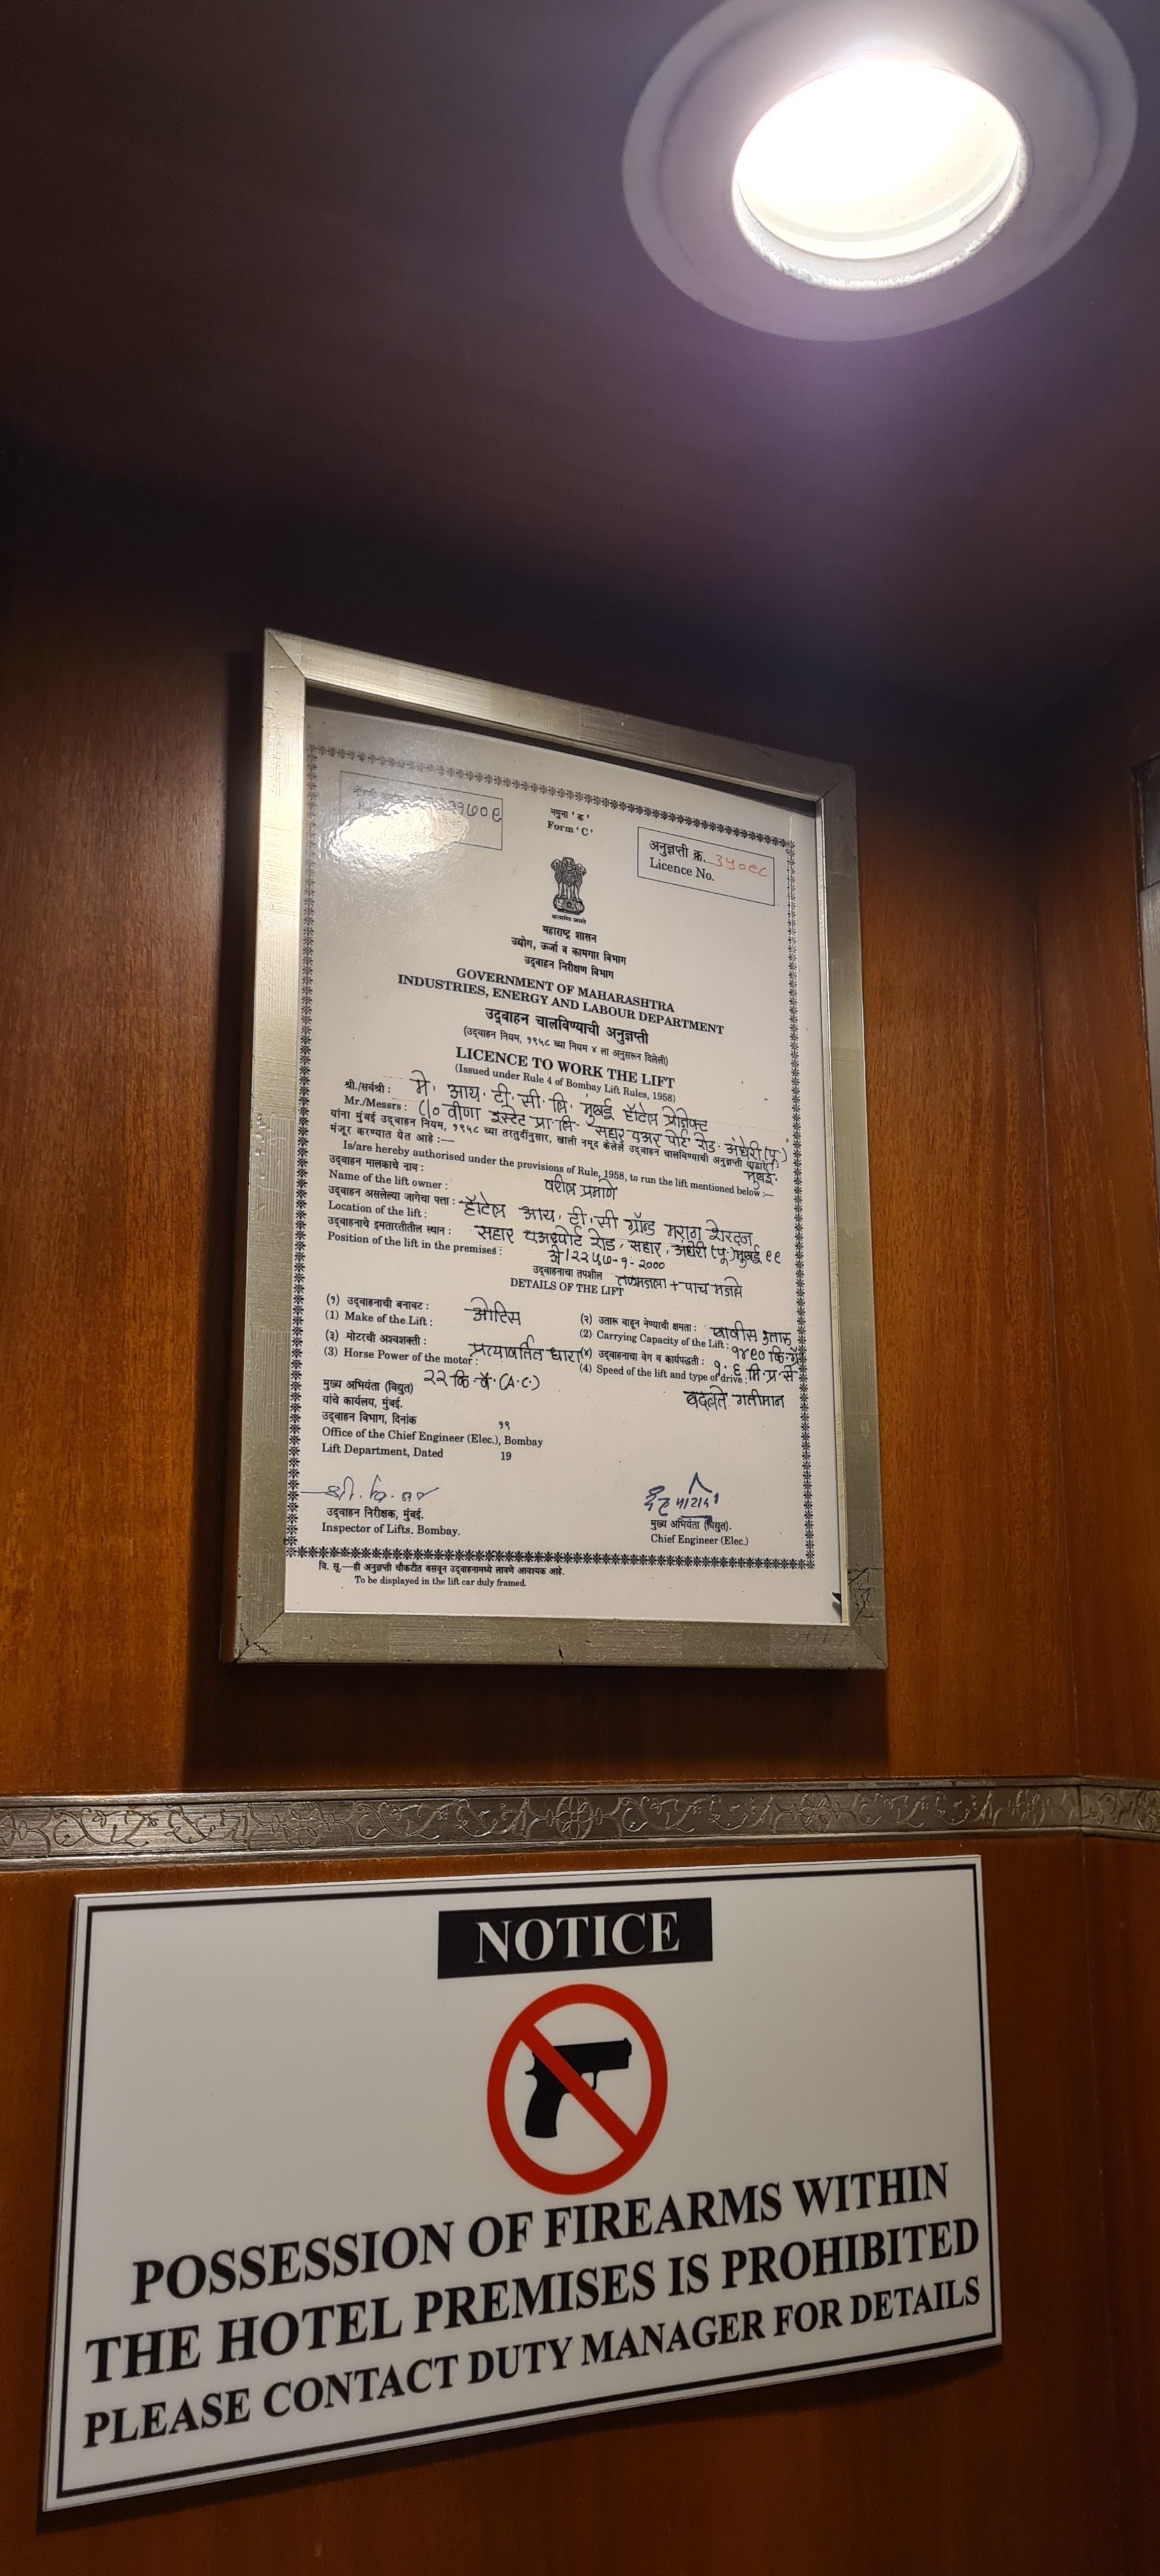 १७०९
नमुना ' क '
Form ' C '
अनुज्ञप्ती क्र. ३५०९८
Licence No.
सत्यमेव जयते
महाराष्ट्र शासन
उद्योग, ऊर्जा व कामगार विभाग
उद्‌वाहन निरीक्षण विभाग
GOVERNMENT OF MAHARASHTRA
INDUSTRIES, ENERGY AND LABOUR DEPARTMENT
उद्‌वाहन चालविण्याची अनुज्ञप्ती
(उद्‌वाहन नियम, १९५८ च्या नियम ४ ला अनुसरून दिलेली)
LICENCE TO WORK THE LIFT
(Issued under Rule 4 of Bombay Lift Rules, 1958)
श्री./सर्वश्री : मे. आय. टी. सी. लि. मुंबई हॉटेल प्रोजेक्ट
Mr./Messrs : C/o वीणा इस्टेट प्रा. लि. सहार एअर पोर्ट रोड. अंधेरी (पू.)
मुंबई.
यांना मुंबई उद्‌वाहन नियम, १९५८ च्या तरतुदींनुसार, खाली नमूद केलेले उद्‌वाहन चालविण्याची अनुज्ञप्ती याद्वारे
मंजूर करण्यात येत आहे :—
Is/are hereby authorised under the provisions of Rule, 1958, to run the lift mentioned below :—
उद्‌वाहन मालकाचे नाव :
Name of the lift owner : वरील प्रमाणे
उद्‌वाहन असलेल्या जागेचा पत्ता : हॉटेल आय. टी. सी ग्रॅन्ड मराठा शेरटन
Location of the lift : सहार एअरपोर्ट रोड, सहार, अंधेरी (पू.) मुंबई ९९
उद्‌वाहनाचे इमतारतीतील स्थान :
Position of the lift in the premises : १-२०००
उद्‌वाहनाचा तपशील तळमजला + पाच मजले
DETAILS OF THE LIFT
(१) उद्‌वाहनाची बनावट : ओटिस
(1) Make of the Lift :
(२) उतारू वाहून नेण्याची क्षमता : बावीस उतारू
(2) Carrying Capacity of the Lift : १४९० कि.ग्रॅ
(३) मोटरची अश्वशक्ती : प्रत्यावर्तित धारा
(3) Horse Power of the motor : २२ कि. वॅ. (A.C.)
(४) उद्‌वाहनाचा वेग व कार्यपद्धती : १.६ मि. प्र. से
(4) Speed of the lift and type of drive :
बदलते गतीमान
मुख्य अभियंता (विद्युत)
यांचे कार्यालय, मुंबई.
उद्‌वाहन विभाग, दिनांक १९
Office of the Chief Engineer (Elec.), Bombay
Lift Department, Dated 19
उद्‌वाहन निरीक्षक, मुंबई.
Inspector of Lifts, Bombay.
मुख्य अभियंता (विद्युत).
Chief Engineer (Elec.)
वि. सू.—ही अनुज्ञप्ती चौकटीत बसवून उद्‌वाहनामध्ये लावणे आवश्यक आहे.
To be displayed in the lift car duly framed.
NOTICE
POSSESSION OF FIREARMS WITHIN
THE HOTEL PREMISES IS PROHIBITED
PLEASE CONTACT DUTY MANAGER FOR DETAILS